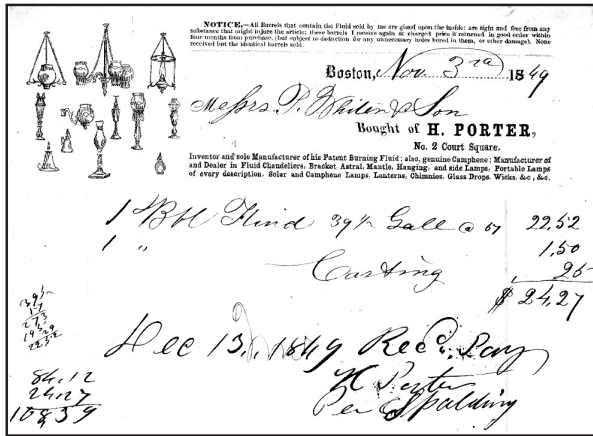 NOTICE.—All Barrels that contain the Fluid sold by me are glued upon the inside; are tight and free from any
substance that might injure the article; these barrels I receive again at charged price if returned in good order within
four months from purchase, (but subject to deduction for any unnecessary holes bored in them, or other damage). None
received but the identical barrels sold.
Boston, Nov. 3rd 1849
Messrs. P. Whitin & Son
Bought of H. PORTER,
No. 2 Court Square.
Inventor and sole Manufacturer of his Patent Burning Fluid; also, genuine Camphene; Manufacturer of
and Dealer in Fluid Chandeliers, Bracket, Astral, Mantle, Hanging, and side Lamps, Portable Lamps
of every description. Solar and Camphene Lamps, Lanterns, Chimnies, Glass Drops, Wicks, &c., &c.
1 Bbl Fluid 39½ Gall @ 57 22,52
1 " 1,50
Carting 25
$ 24,27
Dec 13, 1849 Recd. Pay
H Porter
Per Spalding
84,12
24,27
108,39